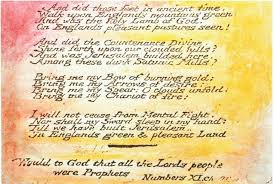 And did those feet in ancient time,
Walk upon Englands mountains green:
And was the holy Lamb of God,
On Englands pleasant pastures seen!
And did the Countenance Divine,
Shine forth upon our clouded hills?
And was Jerusalem builded here,
Among these dark Satanic Mills?
Bring me my Bow of burning gold:
Bring me my Arrows of desire:
Bring me my Spear: O clouds unfold!
Bring me my Chariot of fire!
I will not cease from Mental Fight,
Nor shall my Sword sleep in my hand:
Till we have built Jerusalem,
In Englands green & pleasant Land
Would to God that all the Lords people
were Prophets Numbers XI.ch